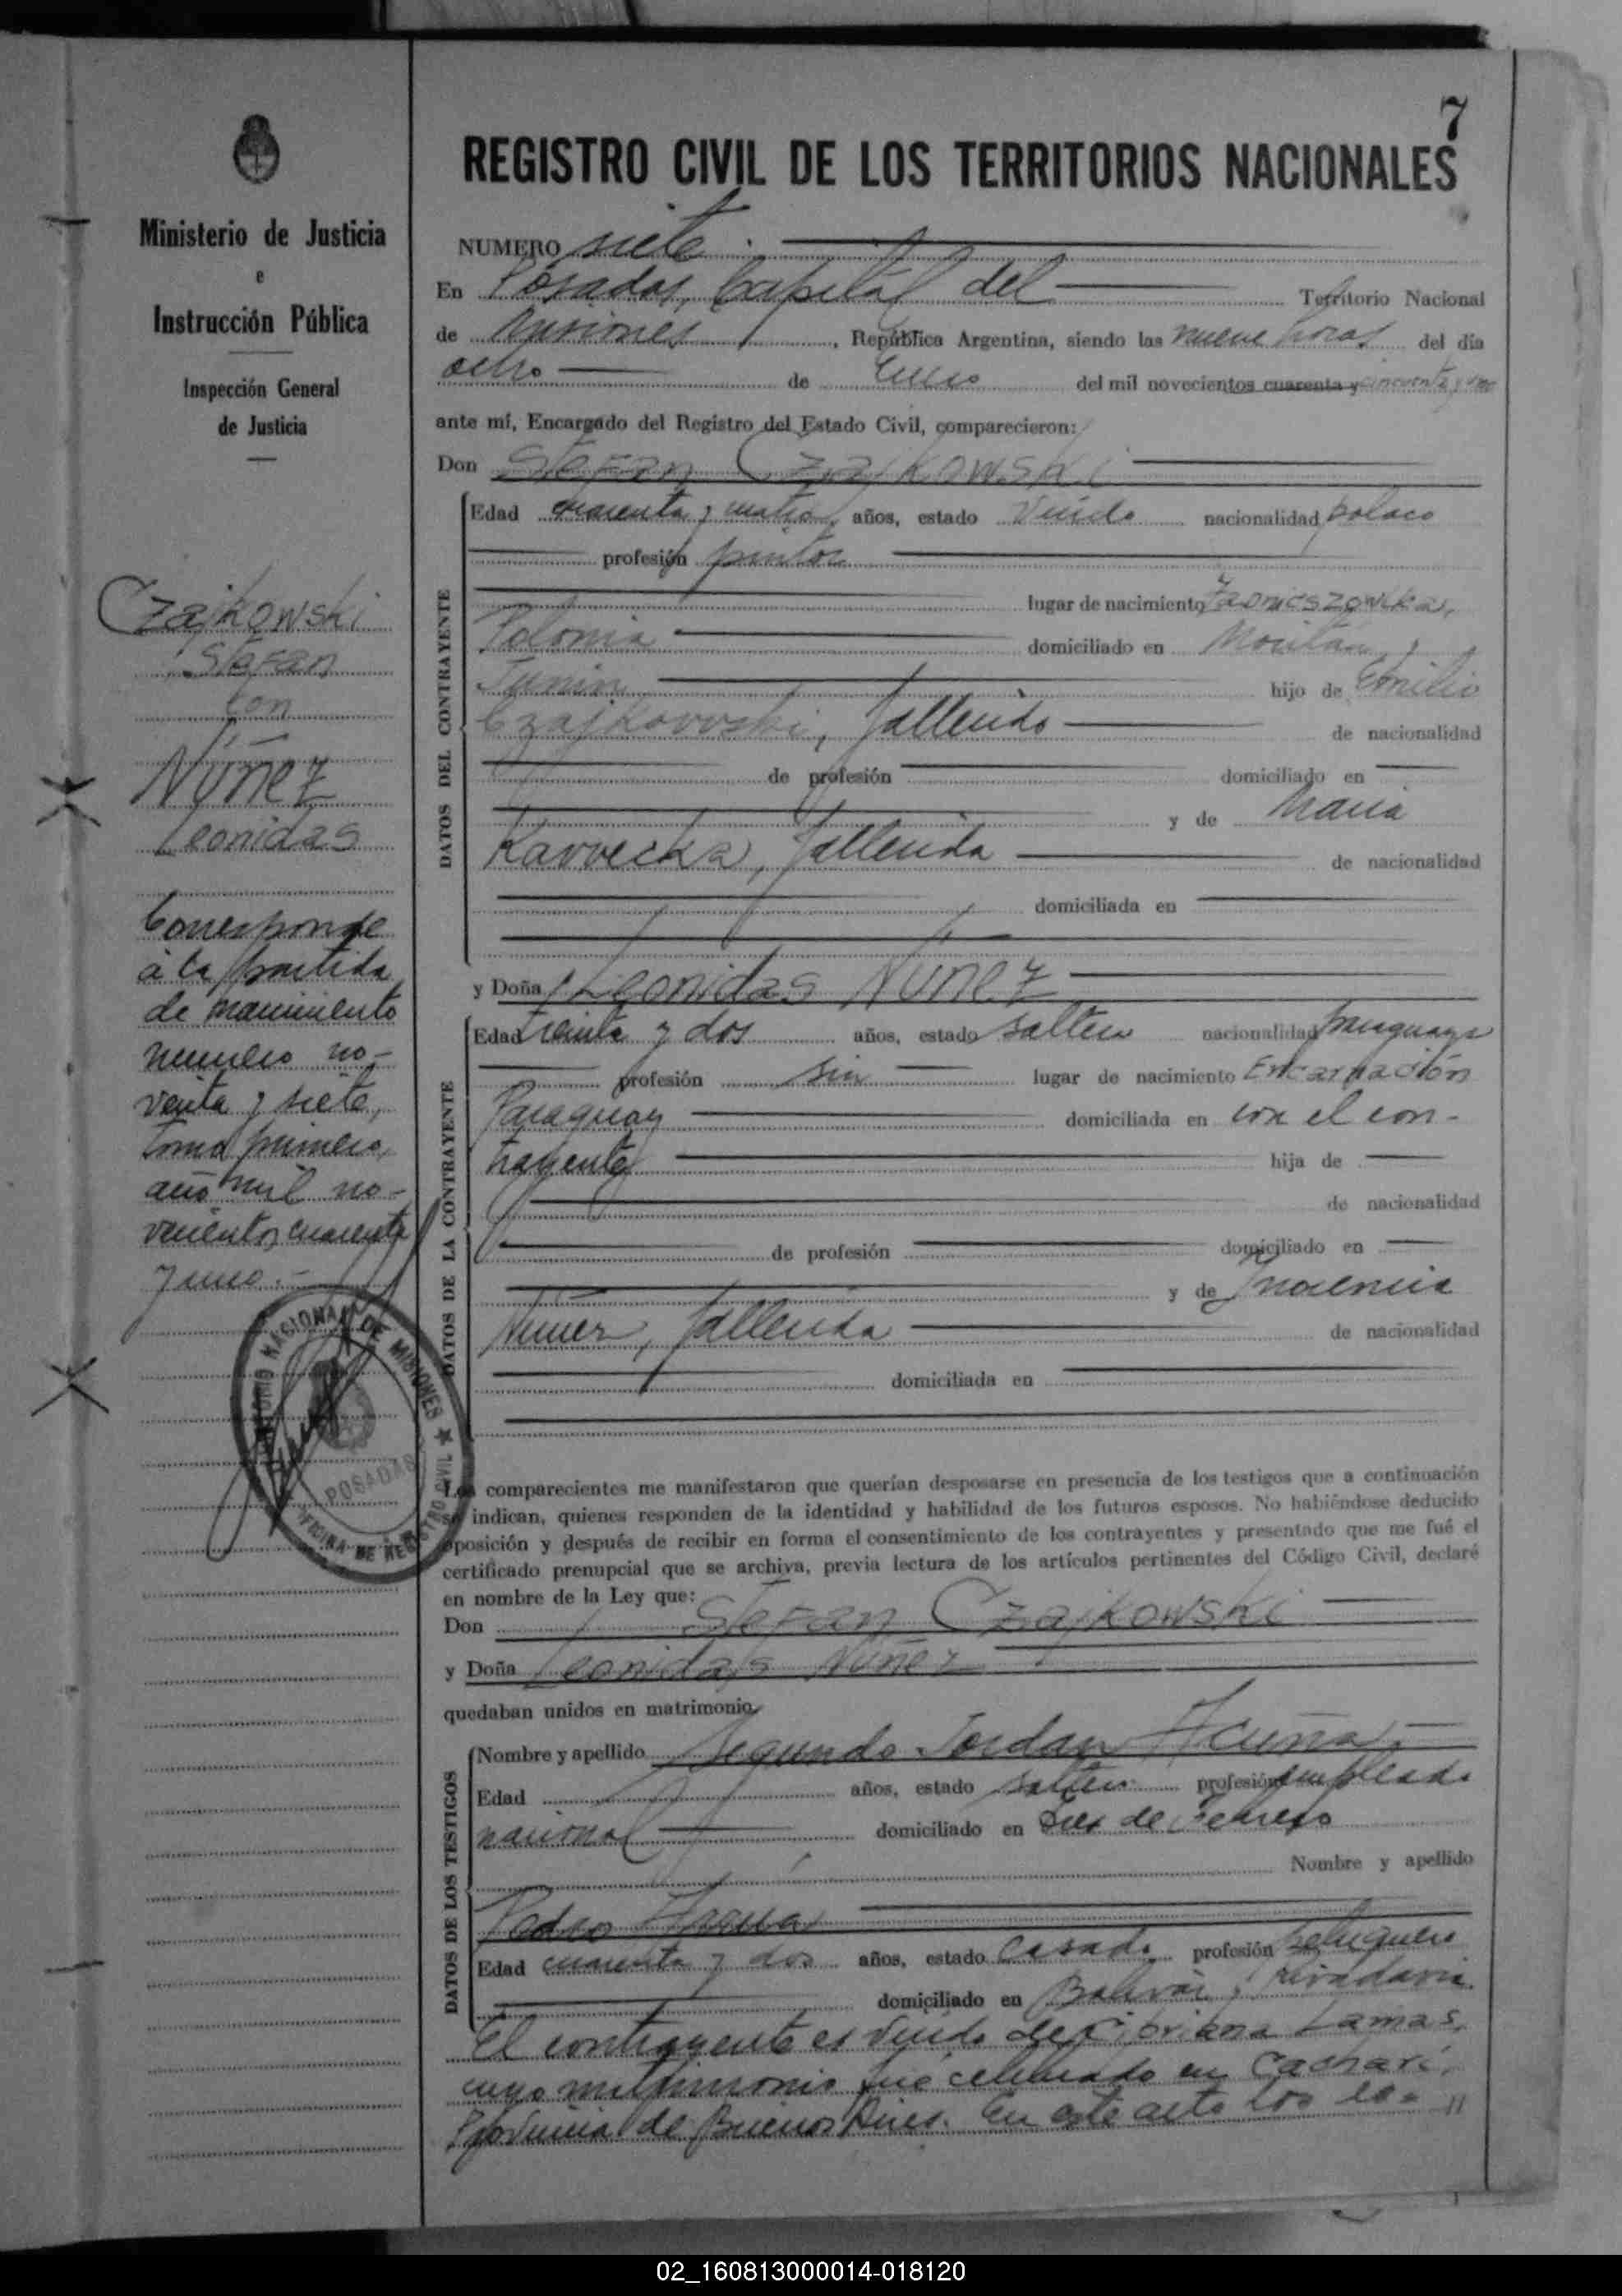 7
REGISTRO CIVIL DE LOS TERRITORIOS NACIONALES
Ministerio de Justicia
e
Instrucción Pública
Inspección General
de Justicia
Czajkowski
Stefan
con
Núñez
Leonidas
Corresponde
a la partida
de nacimiento
número no-
venta y siete,
tomo primero,
año mil no-
vecientos cuarenta
y uno.-
TERRITORIO NACIONAL DE MISIONES
POSADAS
OFICINA DE REGISTRO CIVIL
NUMERO siete.
En Posadas, Capital del Territorio Nacional
de Misiones, República Argentina, siendo las nueve horas del día
ocho de Enero del mil novecientos cuarenta y cincuenta y uno
ante mí, Encargado del Registro del Estado Civil, comparecieron:
Don Stefan Czajkowski
DATOS DEL CONTRAYENTE
Edad cuarenta y cuatro años, estado Viudo nacionalidad polaco
profesión pintor
lugar de nacimiento
Polonia domiciliado en
Junín hijo de Emilio
Czajkowski, fallecido de nacionalidad
de profesión domiciliado en
y de María
Kavvecka, fallecida de nacionalidad
domiciliada en
y Doña Leonidas Núñez
DATOS DE LA CONTRAYENTE
Edad treinta y dos años, estado soltera nacionalidad paraguaya
profesión sin lugar de nacimiento Encarnación
Paraguay domiciliada en con el con-
trayente hija de
de nacionalidad
de profesión domiciliado en
y de
Núñez, fallecida de nacionalidad
domiciliada en
Los comparecientes me manifestaron que querían desposarse en presencia de los testigos que a continuación
se indican, quienes responden de la identidad y habilidad de los futuros esposos. No habiéndose deducido
oposición y después de recibir en forma el consentimiento de los contrayentes y presentado que me fué el
certificado prenupcial que se archiva, previa lectura de los artículos pertinentes del Código Civil, declaré
en nombre de la Ley que:
Don Stefan Czajkowski
y Doña Leonidas Núñez
quedaban unidos en matrimonio
DATOS DE LOS TESTIGOS
Nombre y apellido Segundo Jordan Acuña
Edad años, estado soltero profesión empleado
nacional domiciliado en Tres de Febrero
Nombre y apellido
Pedro
Edad cuarenta y dos años, estado casado profesión peluquero
domiciliado en Bolívar y Rivadavia.
El contrayente es viudo de Cipriana Lamas,
cuyo matrimonio fué celebrado en Cacharí,
Provincia de Buenos Aires. En este acto los es- //
02_160813000014-018120